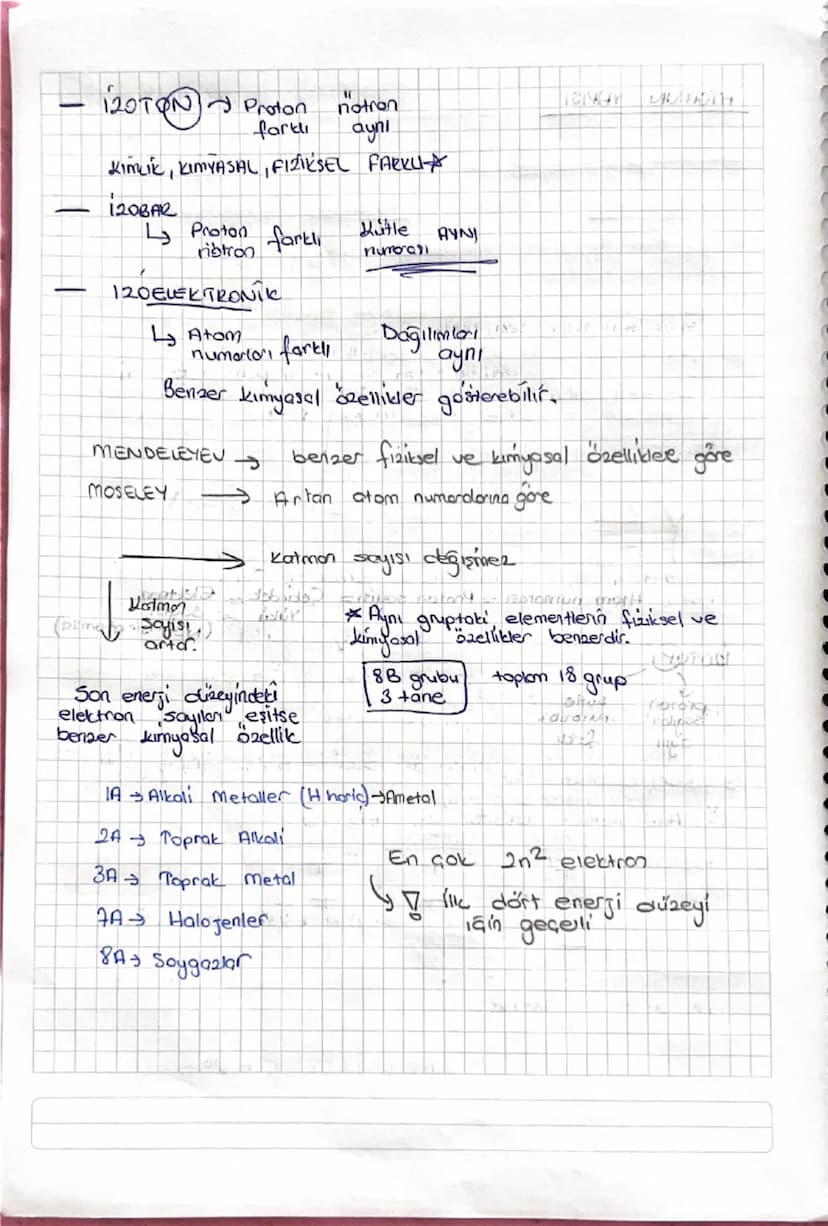 — İZOTON → Proton nötron
farklı aynı
KİMLİK, KİMYASAL, FİZİKSEL FARKLI ☆
— İZOBAR
↳ Proton farklı Kütle AYNI
nötron numarası
— İZOELEKTRONİK
↳ Atom Dağılımları
numaraları farklı aynı
Benzer kimyasal özellikler gösterebilir.
MENDELEYEV → benzer fiziksel ve kimyasal özelliklee göre
MOSELEY → Artan atom numaralarına göre
→ Katman sayısı değişmez
↓ Katman
sayısı
artar.
* Aynı gruptaki elementlerin fiziksel ve
kimyasal özellikler benzerdir.
8B grubu
3 tane
toplam 18 grup
Son enerji düzeyindeki
elektron sayıları eşitse
benzer kimyasal özellik
1A → Alkali Metaller (H hariç) → Ametal
2A → Toprak Alkali
3A → Toprak Metal
7A → Halojenler
8A → Soygazlar
En çok 2n² elektron
↳ ! İlk dört enerji düzeyi
için geçerli